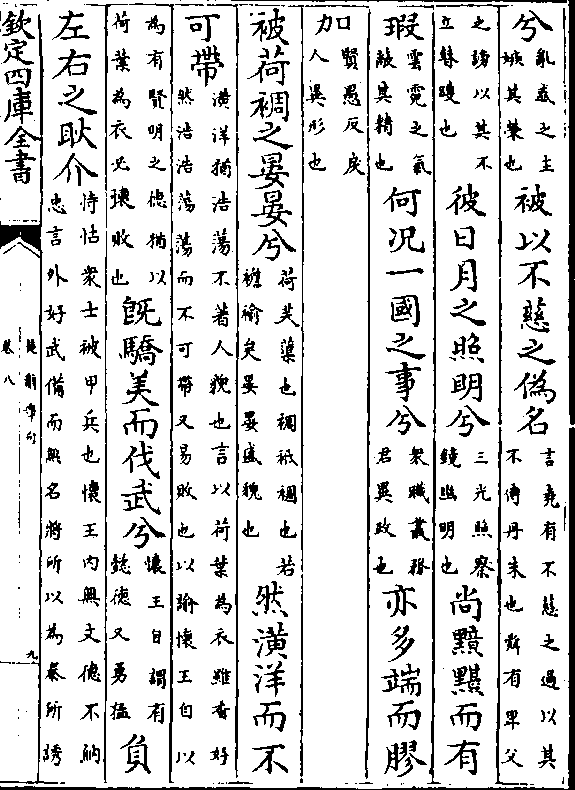 兮亂惑之主嫉其榮也被以不慈之偽名言堯有不慈之過以其不傳丹朱也舜有卑父
之謗以其不立瞽瞍也彼日月之照明兮三光照察鏡幽明也尚黯黮而有
瑕雲霓之氣蔽其精也何況一國之事兮衆職叢務君異政也亦多端而膠
加賢愚反戾人異形也
被荷裯之晏晏兮荷芙蕖也裯袛裯也若襜褕矣晏晏盛貌也然潢洋而不
可帶潢洋猶浩蕩不著人貌也言以荷葉為衣雖香好然浩浩蕩蕩而不可帶又易敗也以喻懷王自以
為有賢明之德猶以荷葉為衣必壞敗也既驕美而伐武兮懷王自謂有懿德又勇猛負
左右之耿介恃怙衆士被甲兵也懷王内無文德不納忠言外好武備而無名將所以為秦所誘
欽定四庫全書
卷八
九